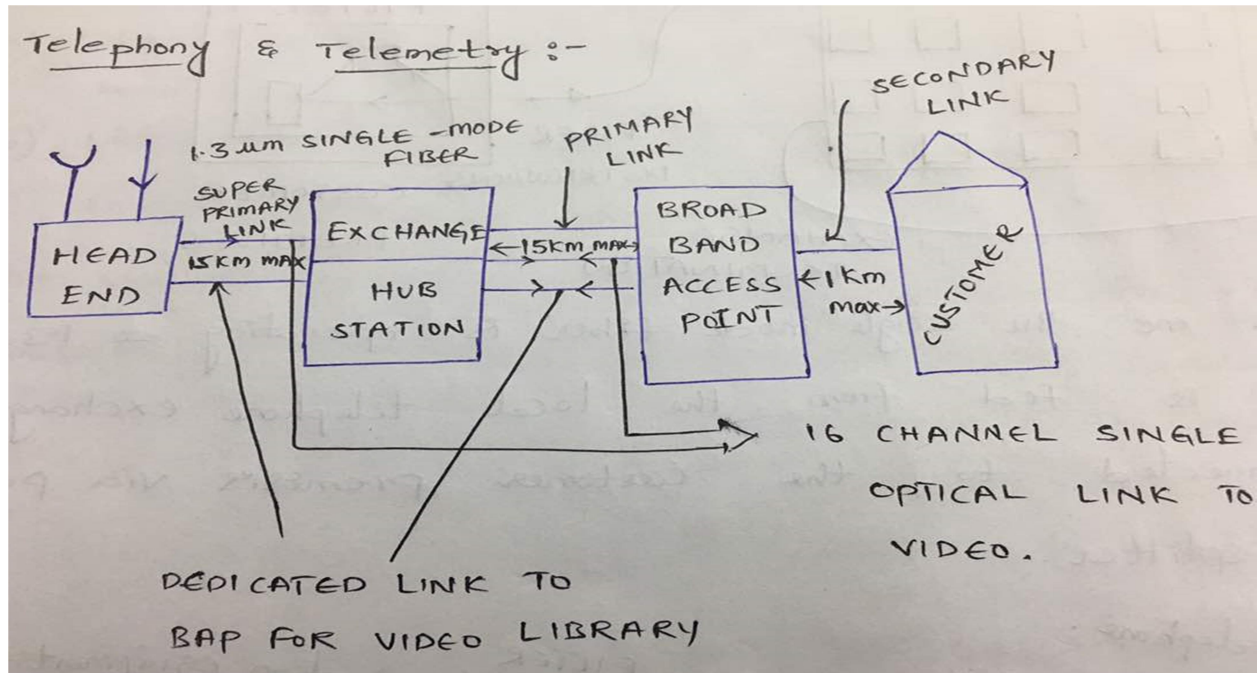 Telephony & Telemetry :-
1.3 um SINGLE -MODE
FIBER
PRIMARY
LINK
SECONDARY
LINK
SUPER
PRIMARY
LINK
15 KM MAX
HEAD
END
EXCHANGE
HUB
STATION
15KM MAX
BROAD
BAND
ACCESS
POINT
1Km
max
CUSTOMER
16 CHANNEL SINGLE
OPTICAL LINK TO
VIDEO.
DEDICATED LINK TO
BAP FOR VIDEO LIBRARY